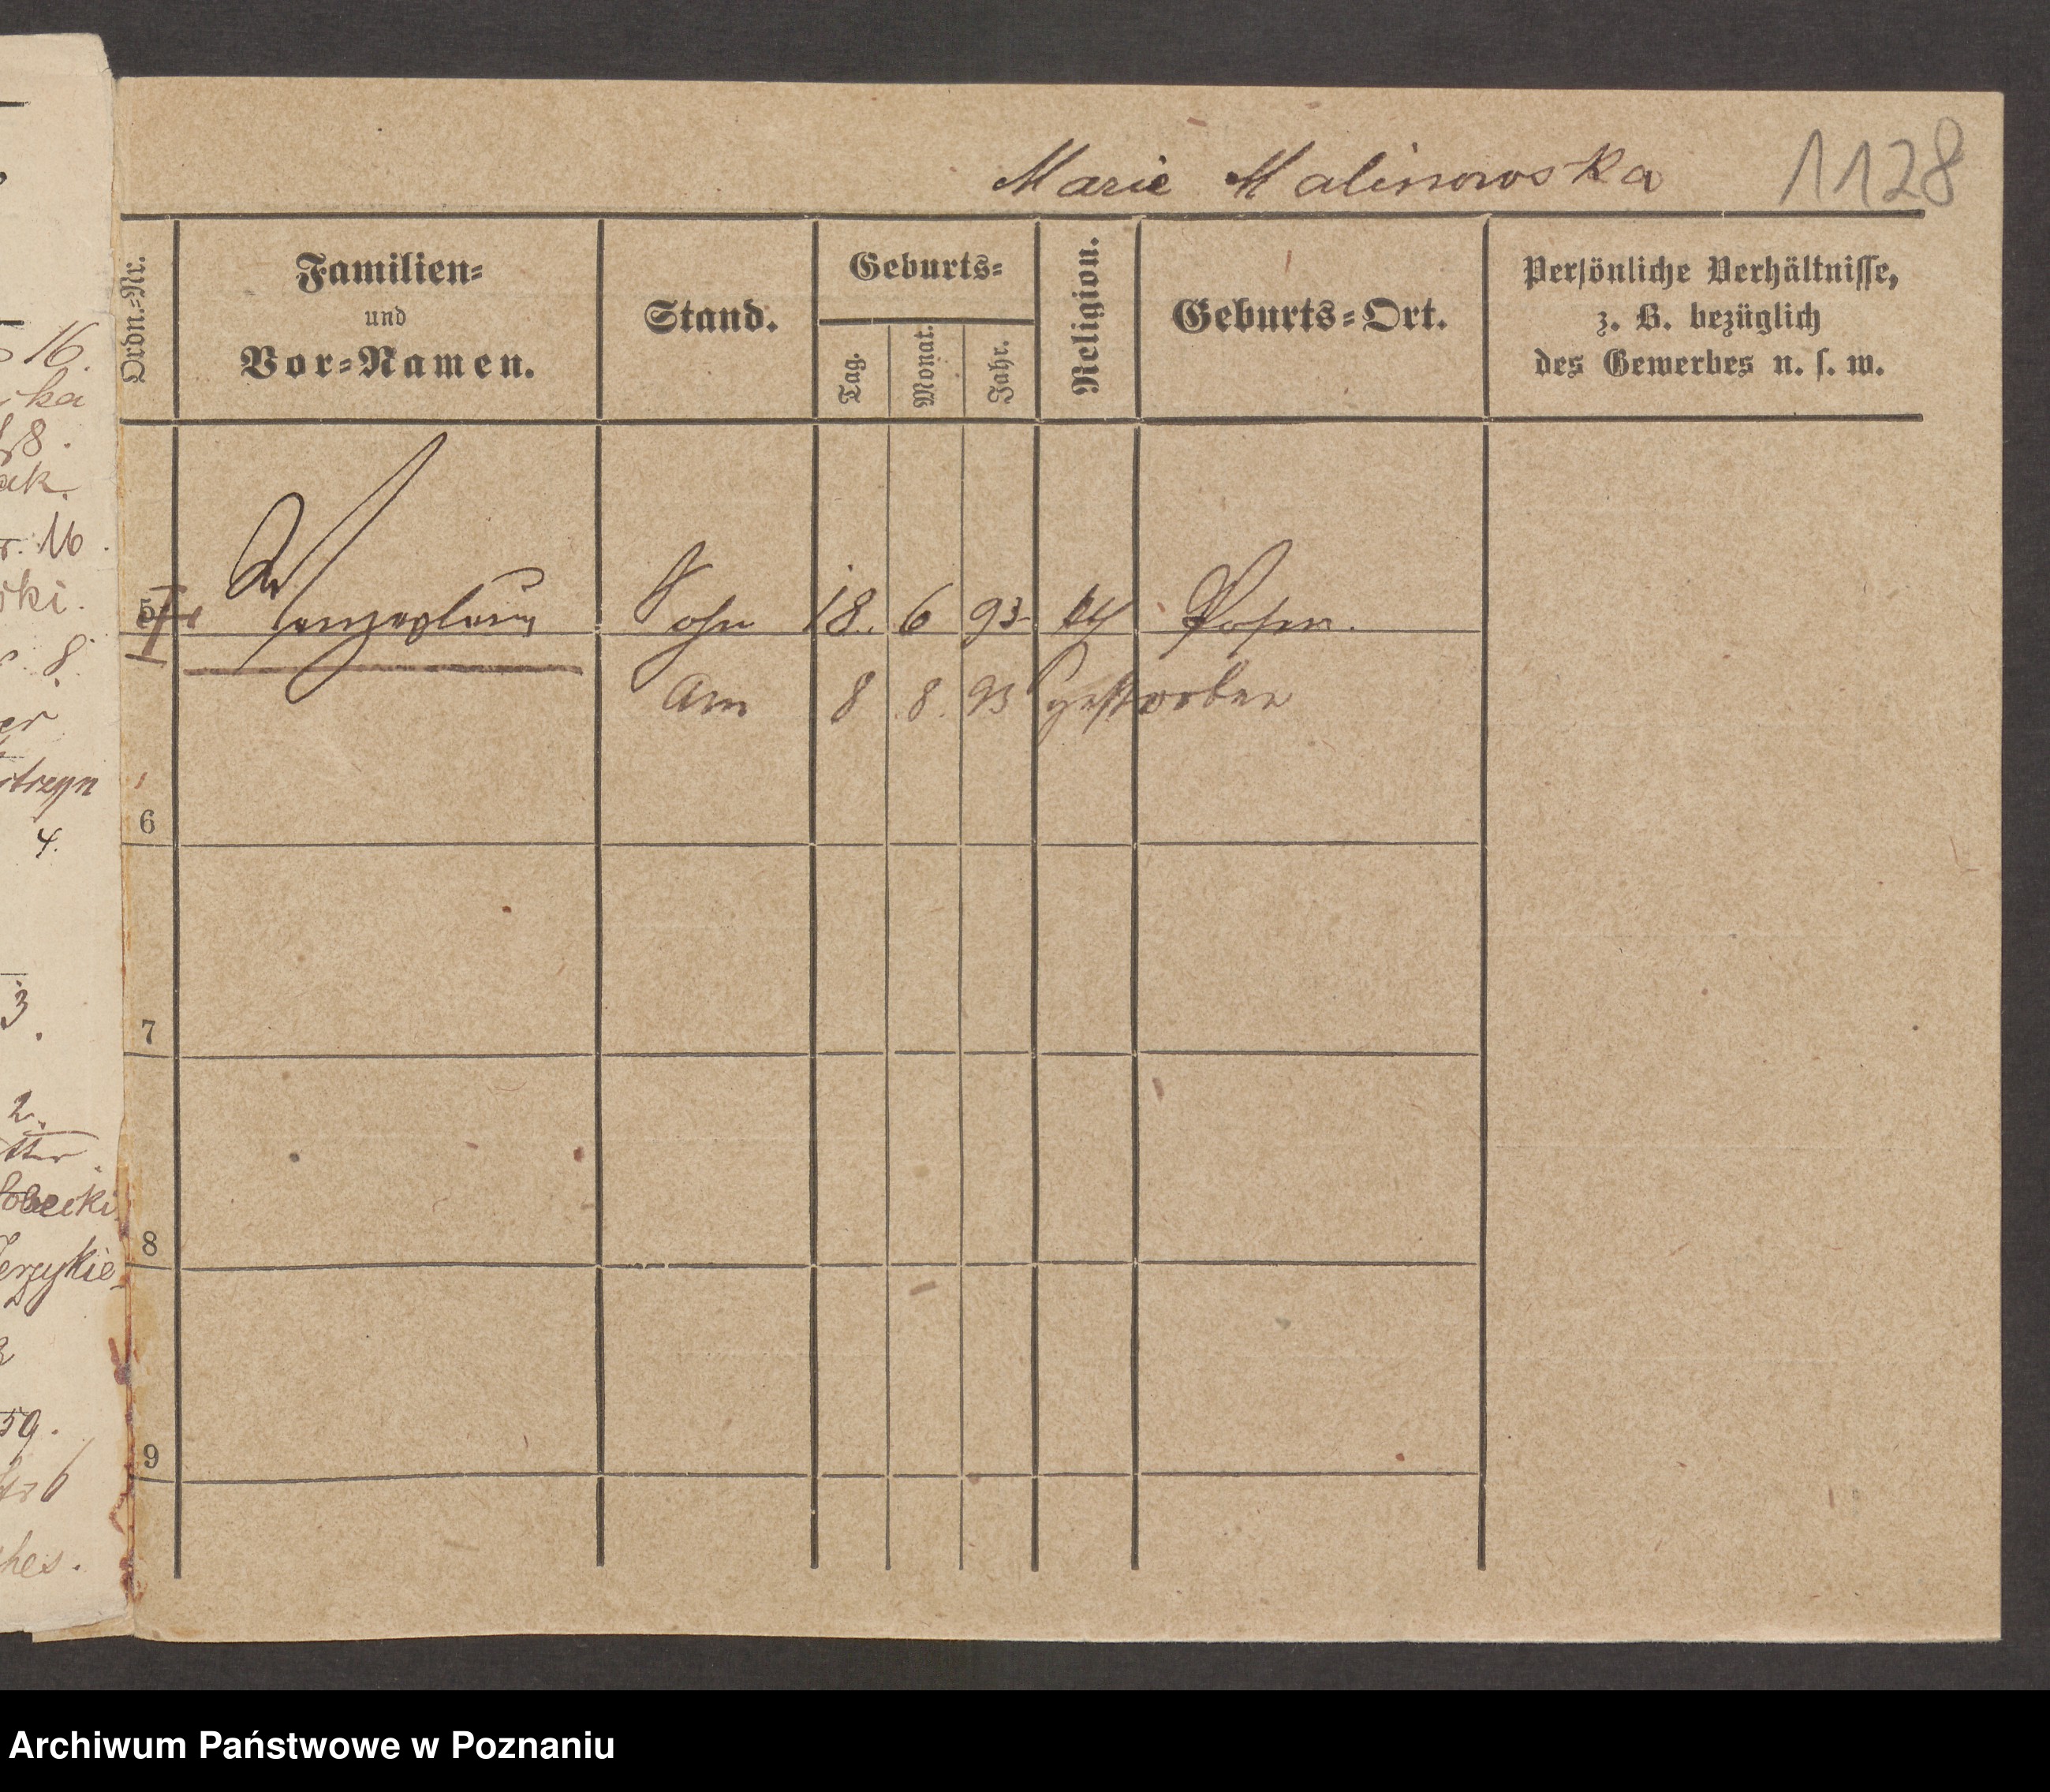 Marie Malinowska 1128
Ordn.=Nr.
Familien=
und
Vor=Namen.
Stand.
Geburts=
Tag.
Monat.
Jahr.
Religion.
Geburts=Ort.
Persönliche Verhältnisse,
z. B. bezüglich
des Gewerbes u. s. w.
5 Sohn 18. 6 93 Posen.
Am 8 8. 93 gestorben
6
7
8
9
16.
ka
8.
ak.
r. 16.
ski.
8.
er
trzyn
4.
3
2.
obecki
erzykie
59.
6
hes.
Archiwum Państwowe w Poznaniu